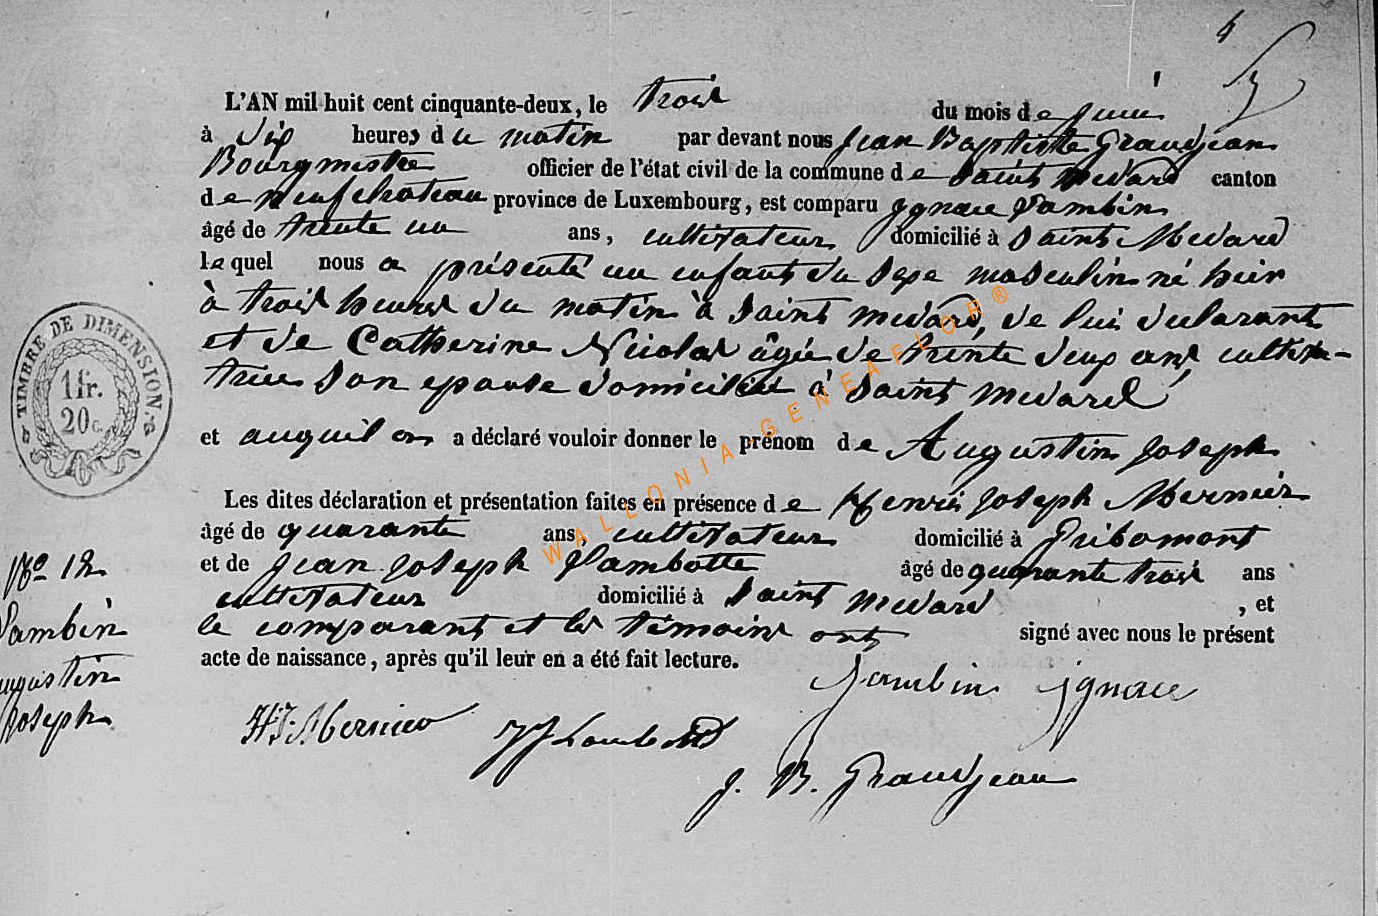 L'AN mil huit cent cinquante-deux, le trois du mois de juin
à Six heures du matin par devant nous Jean Baptiste Grandjean
Bourgmestre officier de l'état civil de la commune de Saint Médard canton
de neufchateau province de Luxembourg, est comparu Ignace Jambin
âgé de trente un ans, cultivateur domicilié à Saint Médard
lequel nous a présenté un enfant du sexe masculin né hier
à trois heures du matin à Saint médard, de lui déclarant
et de Catherine Nicolas âgée de trente deux ans, cultiva-
trice son epouse domiciliée à Saint médard
et auquel on a déclaré vouloir donner le prénom de Augustin Joseph
Les dites déclaration et présentation faites en présence de Henri Joseph Mernier
âgé de quarante ans, cultivateur domicilié à Gribomont
et de Jean Joseph âgé de quarante trois ans
cultivateur domicilié à Saint médard , et
le comparant et les témoins ont signé avec nous le présent
acte de naissance, après qu'il leur en a été fait lecture.
Jambin Ignace
HJ Mernier
J. B. Grandjean
TIMBRE DE DIMENSION.
1 fr.
20 c.
No 12
Jambin
ugustin
Joseph
WALLONIA-GENEAFLOR®